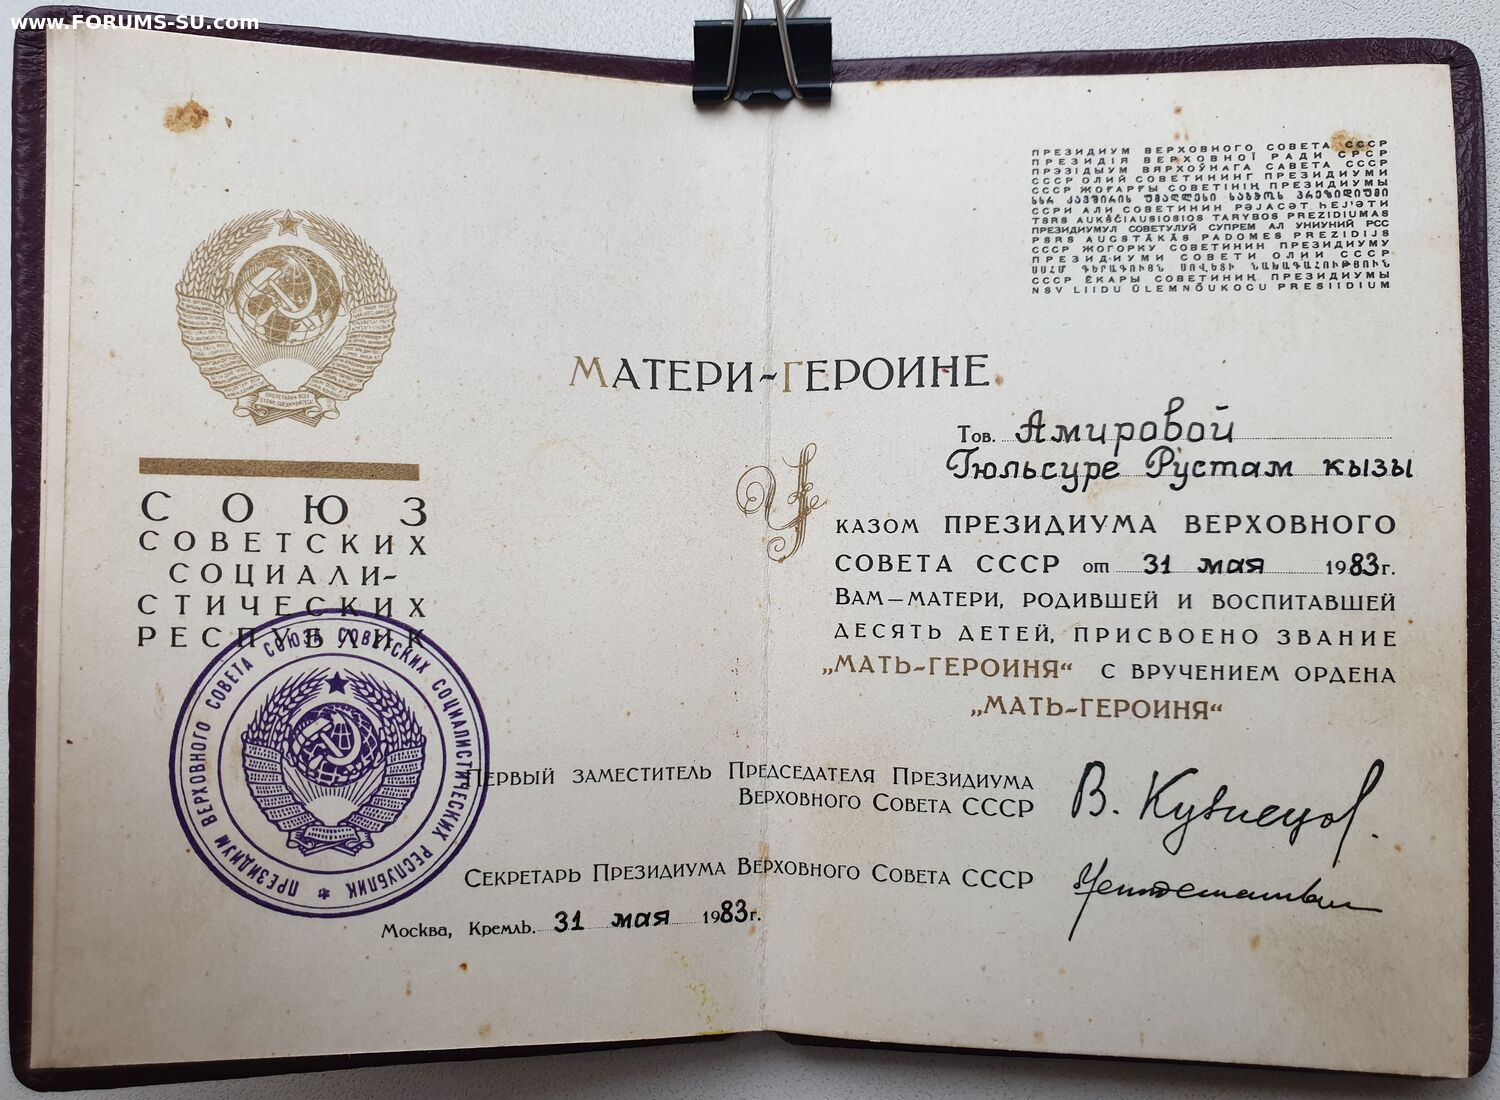 www.FORUMS-SU.com
СОЮЗ
СОВЕТСКИХ
СОЦИАЛИ-
СТИЧЕСКИХ
РЕСПУБЛИК
ПРЕЗИДИУМ ВЕРХОВНОГО СОВЕТА СОЮЗА СОВЕТСКИХ СОЦИАЛИСТИЧЕСКИХ РЕСПУБЛИК
ПРЕЗИДИУМ ВЕРХОВНОГО СОВЕТА СССР
ПРЕЗИДІЯ ВЕРХОВНОЇ РАДИ СРСР
ПРЭЗІДЫУМ ВЯРХОЎНАГА САВЕТА СССР
СССР ОЛИЙ СОВЕТИНИНГ ПРЕЗИДИУМИ
СССР ЖОҒАРҒЫ СОВЕТІНІҢ ПРЕЗИДИУМЫ
სსრ კავშირის უმაღლესი საბჭოს პრეზიდიუმი
ССРИ АЛИ СОВЕТИНИН РӘЈАСӘТ ҺЕЈ'ӘТИ
TSRS AUKŠČIAUSIOSIOS TARYBOS PREZIDIUMAS
ПРЕЗИДИУМУЛ СОВЕТУЛУЙ СУПРЕМ АЛ УНИУНИЙ РСС
PSRS AUGSTĀKĀS PADOMES PREZIDIJS
СССР ЖОГОРКУ СОВЕТИНИН ПРЕЗИДИУМУ
ПРЕЗИДИУМИ СОВЕТИ ОЛИИ СССР
ՍՍՀՄ ԳԵՐԱԳՈՒՅՆ ՍՈՎԵՏԻ ՆԱԽԱԳԱՀՈՒԹՅՈՒՆ
СССР ЕКАРЫ СОВЕТИНИҢ ПРЕЗИДИУМЫ
NSV LIIDU ÜLEMNÕUKOGU PRESIIDIUM
МАТЕРИ-ГЕРОИНЕ
Тов. Амировой
Гюльсуре Рустам кызы
УКАЗОМ ПРЕЗИДИУМА ВЕРХОВНОГО
СОВЕТА СССР от 31 мая 1983г.
ВАМ—МАТЕРИ, РОДИВШЕЙ И ВОСПИТАВШЕЙ
ДЕСЯТЬ ДЕТЕЙ, ПРИСВОЕНО ЗВАНИЕ
„МАТЬ-ГЕРОИНЯ“ С ВРУЧЕНИЕМ ОРДЕНА
„МАТЬ-ГЕРОИНЯ“
ПЕРВЫЙ ЗАМЕСТИТЕЛЬ ПРЕДСЕДАТЕЛЯ ПРЕЗИДИУМА
ВЕРХОВНОГО СОВЕТА СССР
В. Кузнецов.
СЕКРЕТАРЬ ПРЕЗИДИУМА ВЕРХОВНОГО СОВЕТА СССР
Москва, Кремль. 31 мая 1983г.